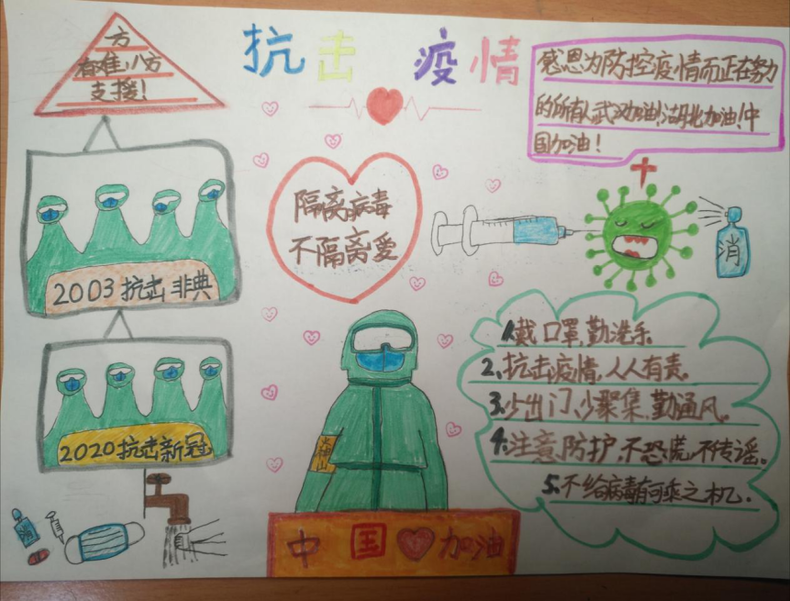 抗击 疫情
方
有难,八方
支援！
感恩为防控疫情而正在努力
的所有人武汉加油!湖北加油!中
国加油！
隔离病毒
不隔离爱
消
2003抗击非典
2020抗击新冠
1.戴口罩,勤洗手.
2.抗击疫情,人人有责.
3.少出门,少聚集,勤通风.
4.注意防护,不恐慌,不传谣.
5.不给病毒有可乘之机.
火神山
中国加油